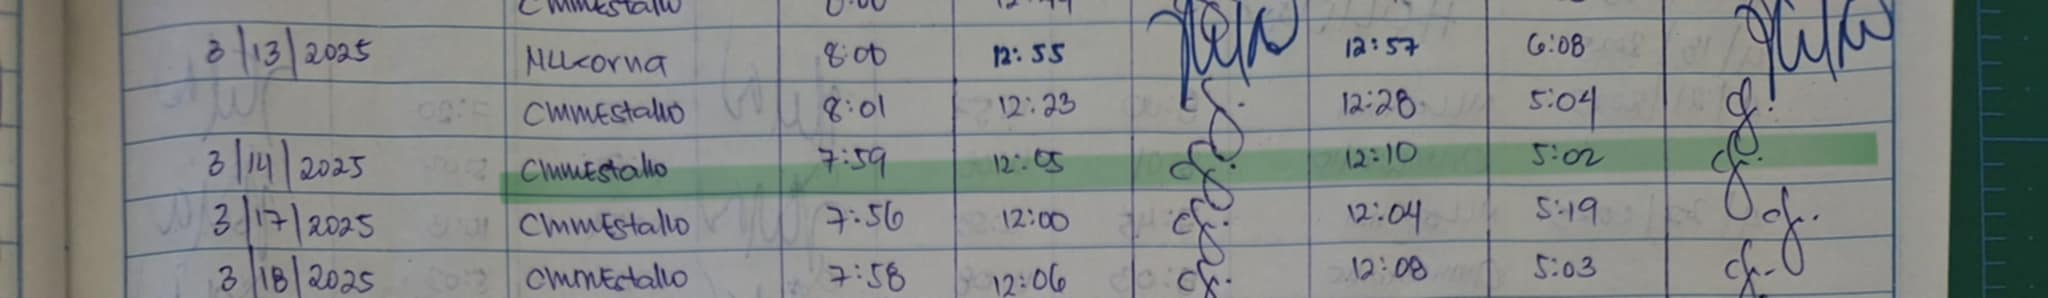 CMMEstallo 8:00
3/13/2025 MLLcorna 8:00 12:55 12:57 6:08
CMMEstallo 8:01 12:23 12:28 5:04
3/14/2025 CMMEstallo 7:59 12:05 12:10 5:02
3/17/2025 CMMEstallo 7:56 12:00 12:04 5:19
3/18/2025 CMMEstallo 7:58 12:06 12:08 5:03